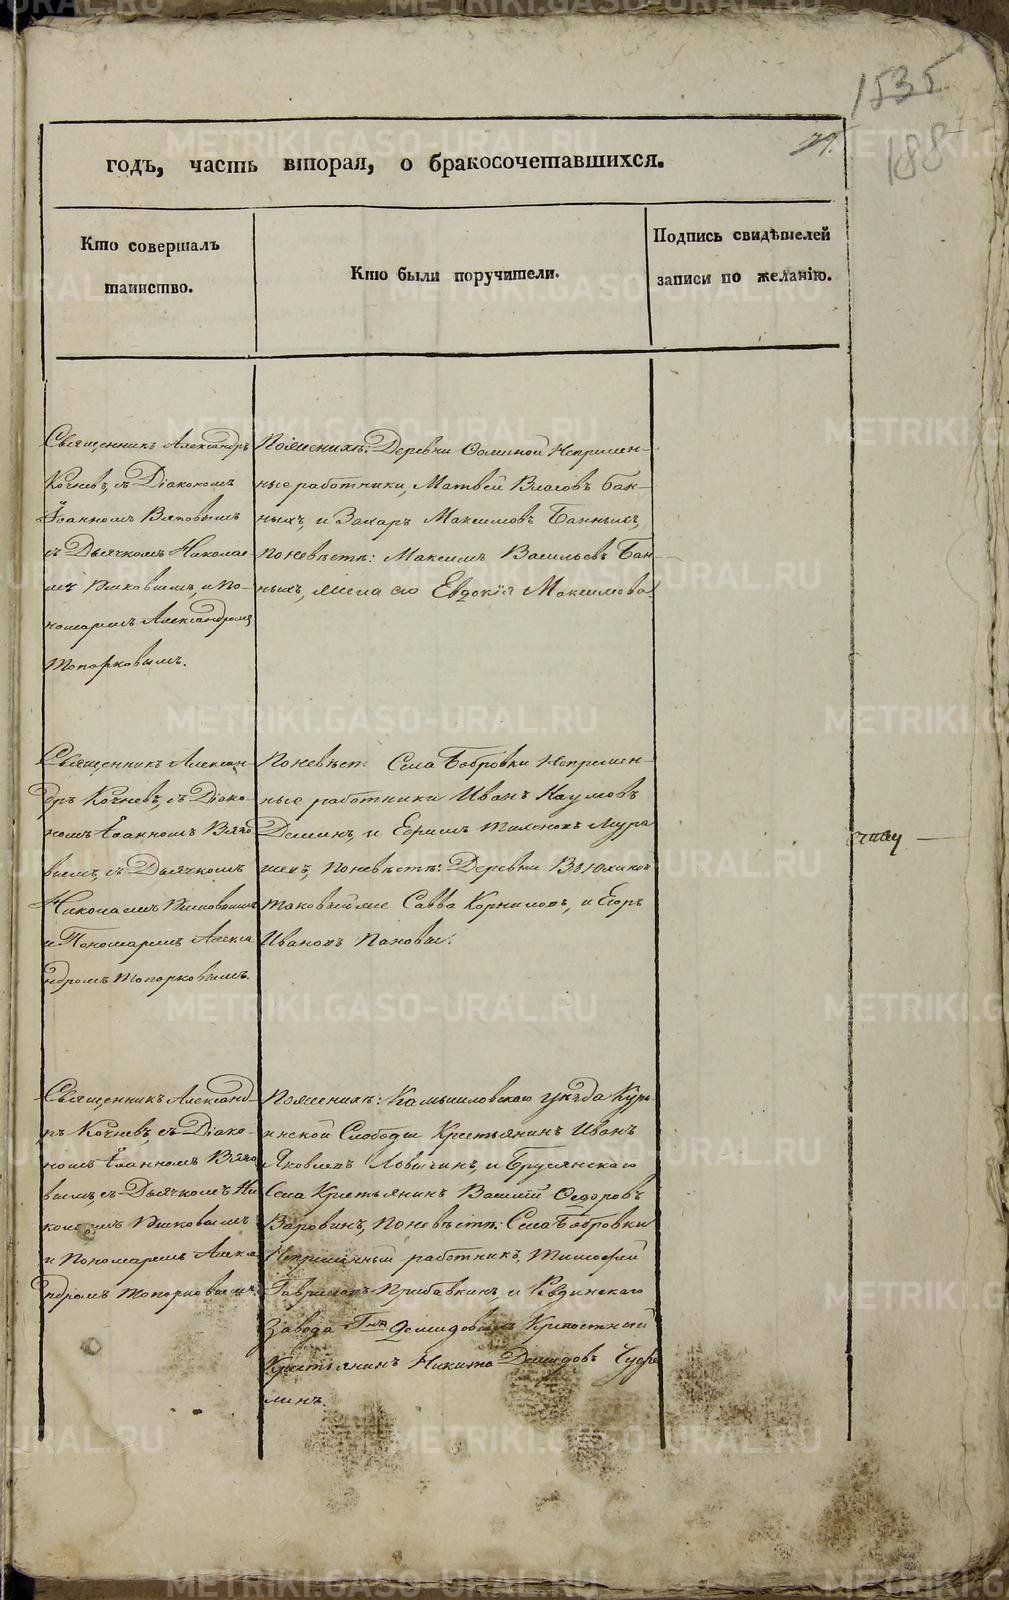 1535
188
79.
годъ, часть вторая, о бракосочетавшихся.
Кто совершалъ
таинство.
Кто были поручители.
Подпись свидѣтелей
записи по желанію.
Священникъ Александръ
Кочневъ, съ Діакономъ
Іоанномъ Вяповымъ
съ Дьячкомъ Никола
емъ и по
номаремъ Александромъ
Топорковымъ.
Поженихѣ: Деревни Соминой Непремен-
ные работники, Матвей Власовъ Бан-
ныхъ, и Захаръ Максимовъ Банныхъ,
поневѣстѣ: Максимъ Васильевъ Бан-
ныхъ, жена его Евдокія Максимова.
Священникъ Алексан-
дръ Кочневъ, съ Діако-
номъ Іоанномъ Вяпо
вымъ, съ Дьячкомъ
Николаемъ
и Пономаремъ Алекса
ндромъ Топорковымъ.
Поневѣст: Села Бобровки Непремен-
ные работники Иванъ Наумовъ
Деминъ, и Ефимъ Мура
шевъ, поневѣстѣ: Деревни
таковыеже Савва Корниловъ, и Егоръ
Ивановъ Пановы.
Священникъ Александ-
ръ Кочневъ, съ Діако-
номъ Іоанномъ Вяпо
вымъ, съ Дьячкомъ Ни
колаемъ
и Пономаремъ Алекса
ндромъ Топорковымъ.
Поженихѣ: Камышловскаго уѣзда Курь
инской Слободы Крестьянинъ Иванъ
Яковлевъ Ловыгинъ, и Брусянскаго
Села Крестьянинъ Василій Федоровъ
Варовинъ, поневѣстѣ: Села Бобровки
Непременный работникъ, Тимофей
Гавриловъ Прибавкинъ, и Ревдинскаго
Завода Гна Демидовыхъ Крепостный
Крестьянинъ Никита Демидовъ
METRIKI.GASO-URAL.RU